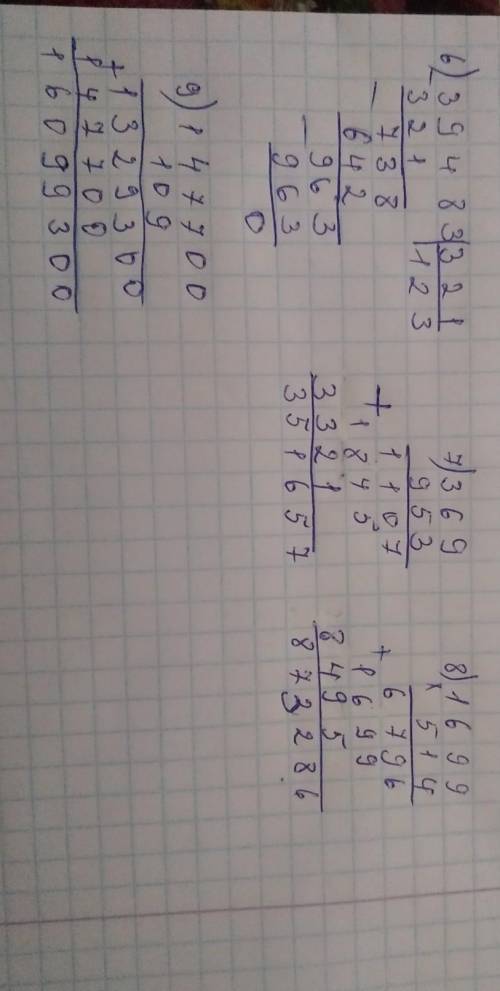 6) 39483|321
- 321 |123
- 738
642
- 963
963
0
7) 369
953
1107
+ 1845
3321
351657
8) 1699
x 514
6796
+ 1699
8495
873286
9) 147700
109
1329300
+ 147700
16099300